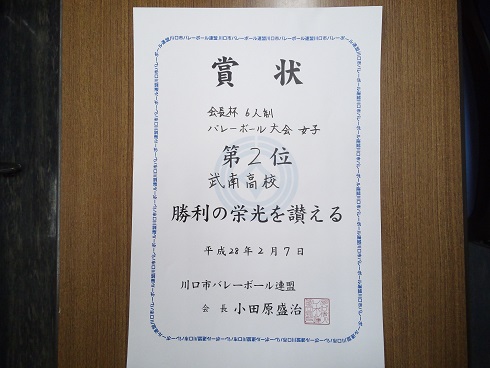 賞状
会長杯 6人制
バレーボール大会 女子
第2位
武南高校
勝利の栄光を讃える
平成28年2月7日
川口市バレーボール連盟
会長 小田原盛治